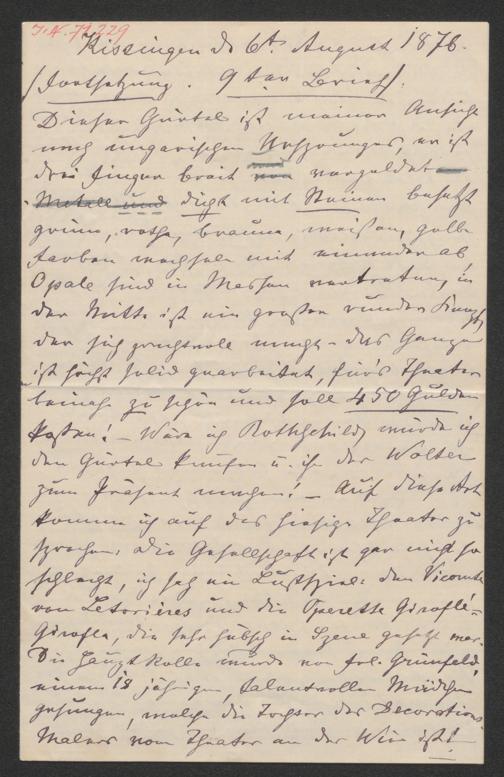 I.N. 79.229
Kissingen d. 6t. August 1876.
(Fortsetzung. 9ter Brief).
Dieser Gürtel ist meiner Ansicht
nach ungarischen Ursprunges, er ist
drei Finger breit und vergoldet
Metall und dicht mit Steinen besetzt
grüne, rothe, braune, weißen, gelbe
Farben wechseln mit einander ab
Opale sind in Massen vertreten, in
der Mitte ist ein großer runder
der sich prachtvoll macht – das Ganze
ist höchst solid gearbeitet, für's Theater
beinahe zu schön und soll 450 Gulden
kosten! – Wäre ich Rothschild, würde ich
den Gürtel kaufen u. ihn der Wolter
zum Präsent machen! – Auf diese Art
komme ich auf das hiesige Theater zu
sprechen. Die Gesellschaft ist gar nicht so
schlecht, ich sah ein Lustspiel: den Vicomte
von Letorières und die Operette Giroflé-
Girofla, die sehr hübsch in Szene gesetzt war.
Die Hauptrolle wurde von Frl. Grünfeld,
einem 18 jährigen, talentvollen Mädchen
gesungen, welche die Tochter des Decorations-
Malers vom Theater an der Wien ist!